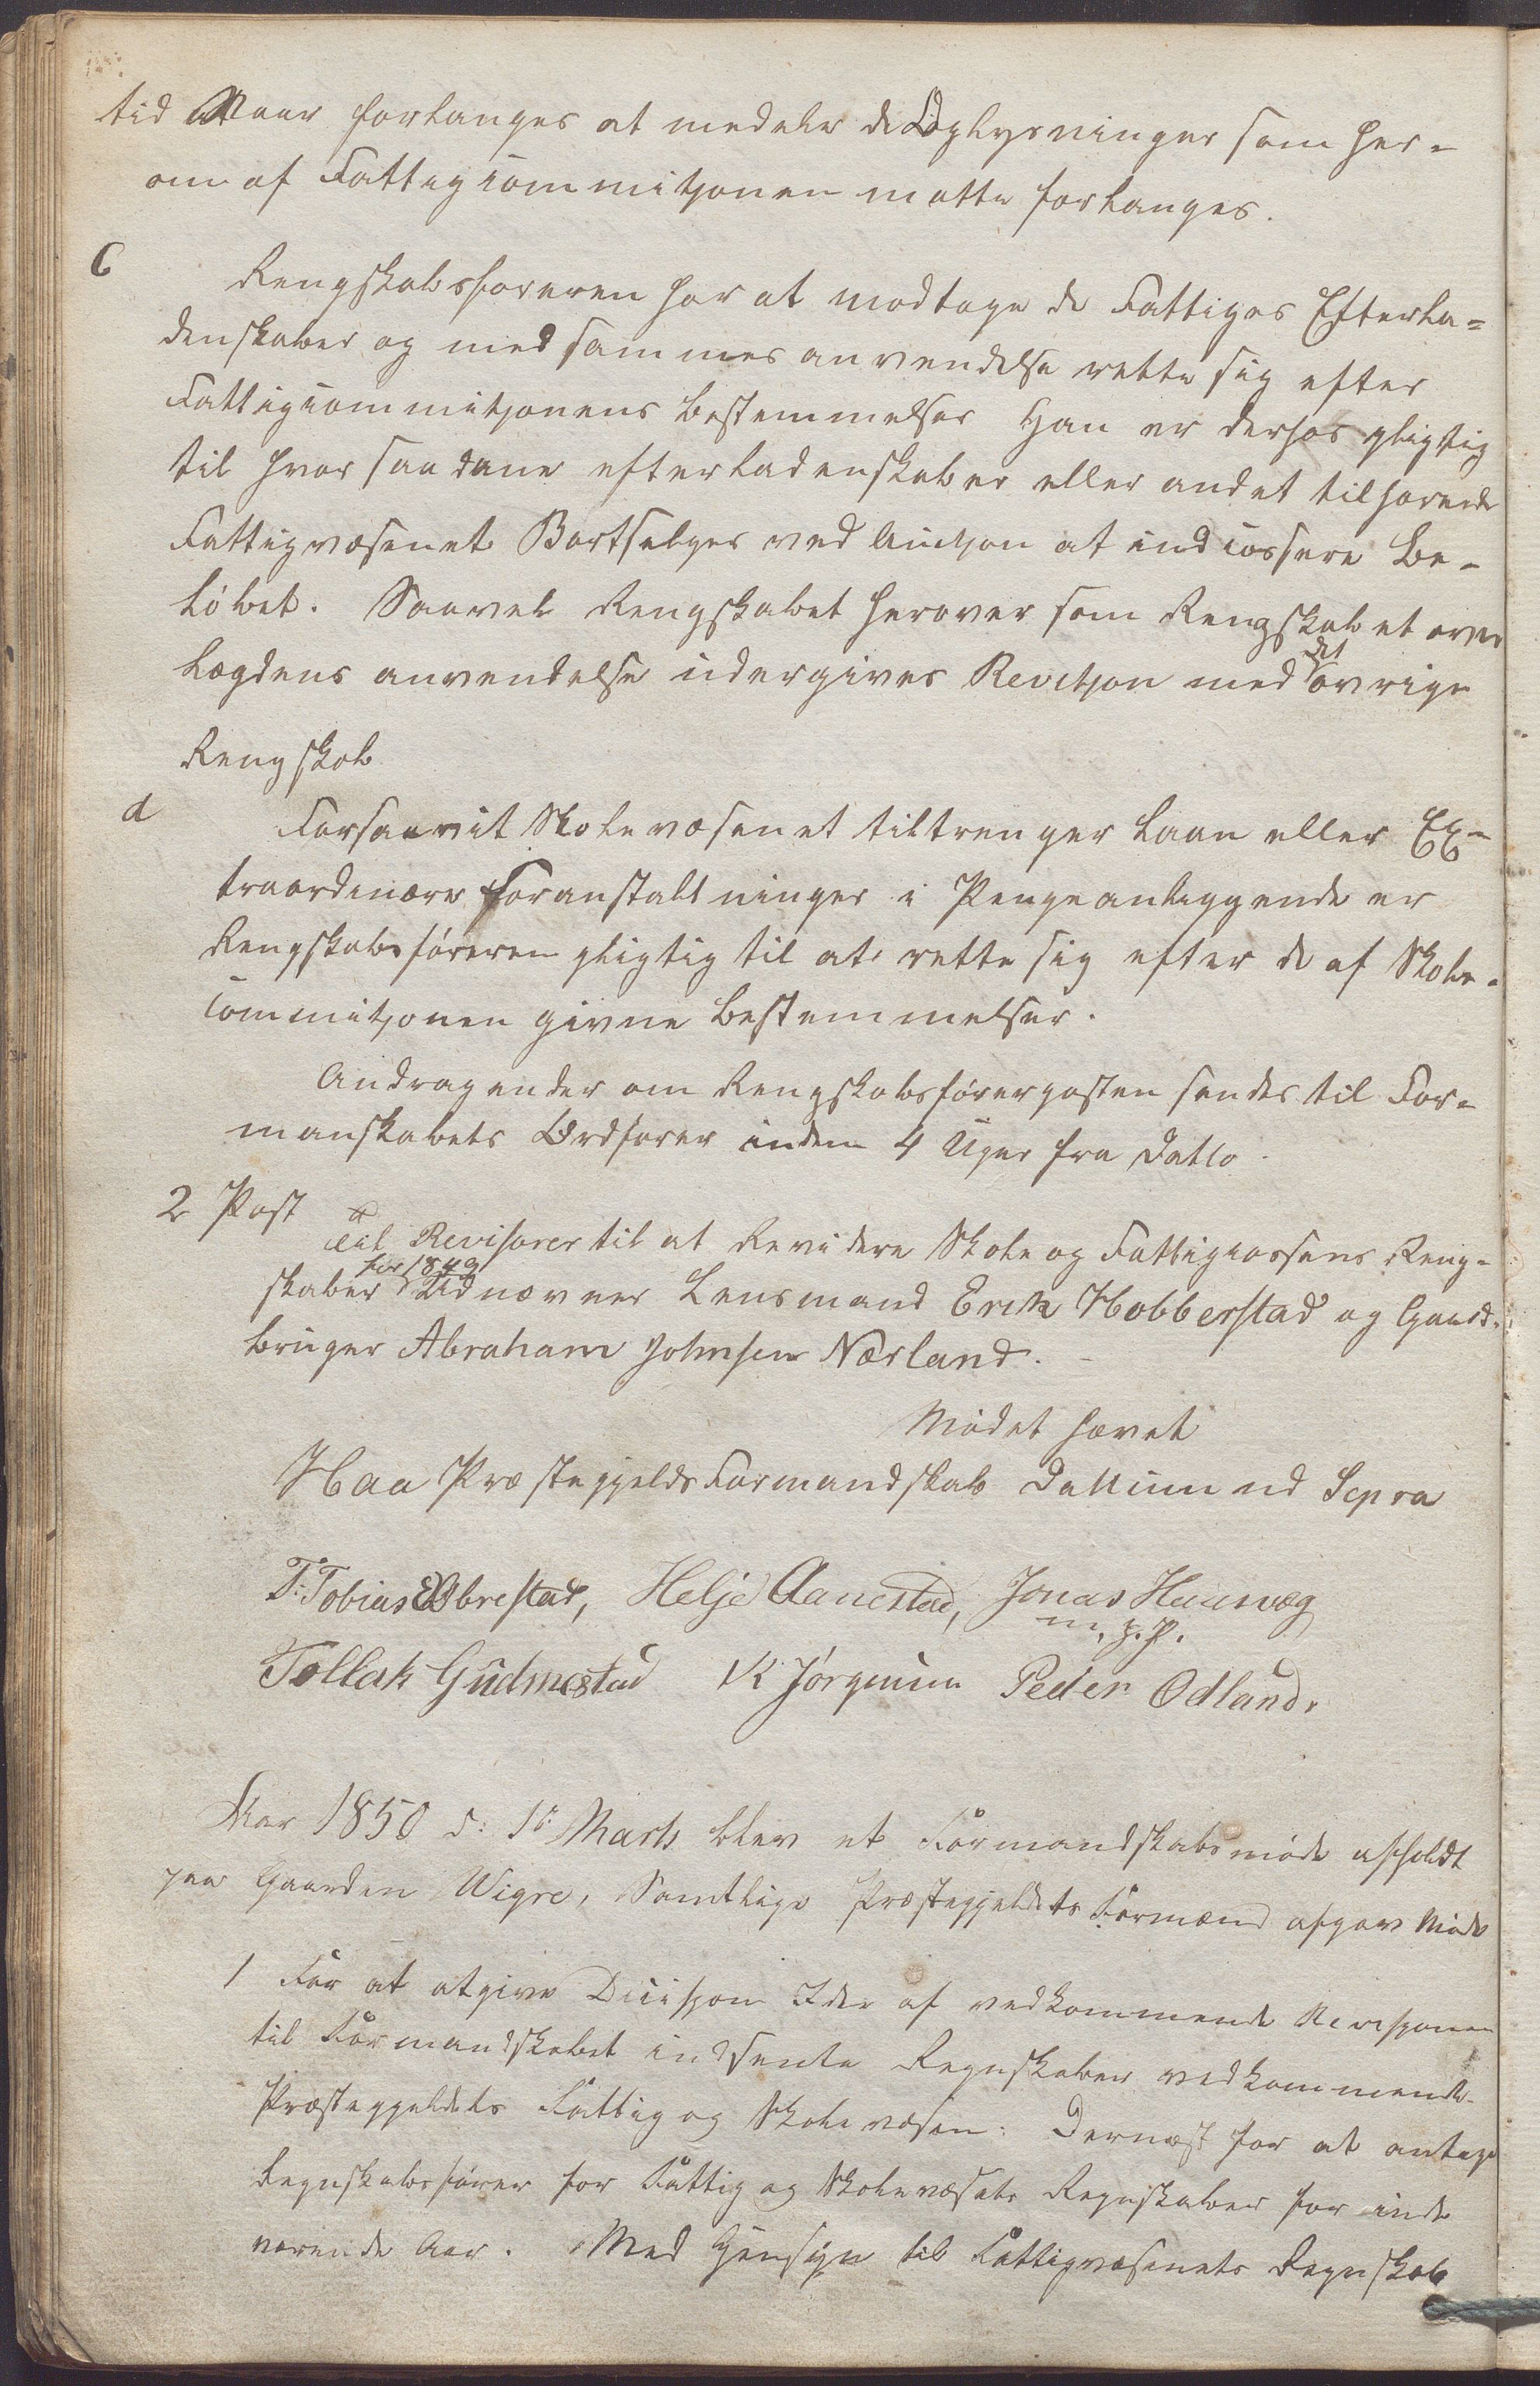 tid Naar forlanges at medele de Oplysninger som her-
om af Fattigcommitjonen motte forlanges.
C Rengskabsforeren har at modtage de Fattiges Efterla=
denskaber og med sammes anvendelse rette sig efter
Fattigcommitjonens bestemmelser Han er derhos pligtig
til hvor saadane efterladenskaber eller andet tilhorende
Fattigvæsenet Bortselges ved Auctjon at indcassere Be-
løbet. Saavel Rengskabet herover som Rengskabet over
Lægdens anvendelse undergives Revitjon med det øvrige
Rengskab
d Forsaavit Skolevæsenet tiltrenger Laan eller Ex-
traordinære Foranstaltninger i Pengeanliggende er
Rengskabsføreren pligtig til at rette sig efter de af Skole-
commitjonen givne bestemmelser.
Andragender om Rengskabsførerposten sendes til For-
manskabets Ordforer inden 4 Uger fra Datto.
2 Post
Til Revisorer til at Revidere Skole og Fattigcassens Reng-
skaber for 1849 Udnævnes Lensmand Erik Hobberstad og Gaard-
bruger Abraham Johnsen Nærland.
Mødet hævet
Haa Præstegjelds Formandskab Dattum ud Supra
T. Tobias Obrestad, Helje Aanestad, Jonas Hauvæg
m. p. P.
Tollak Gudmestad K Jørgensen Peder Odland.
Aar 1850 d: 1te Marts blev et Formandskabsmøde afholdt
paa Gaarden Wigre, Samtlige Præstegjeldets Formænd afgav Møde
1 For at afgive Decisjon I de af vedkommende Revisjonen
til Formandskabet indsente Regnskaber vedkommende
Præstegjeldets Fattig og Skolevæsen: Dernæst for at antage
Regnskabsfører for Fattig og Skolevæsets Regnskaber for inde
værende Aar. Med Hensyn til Fattigvæsenets Regnskab